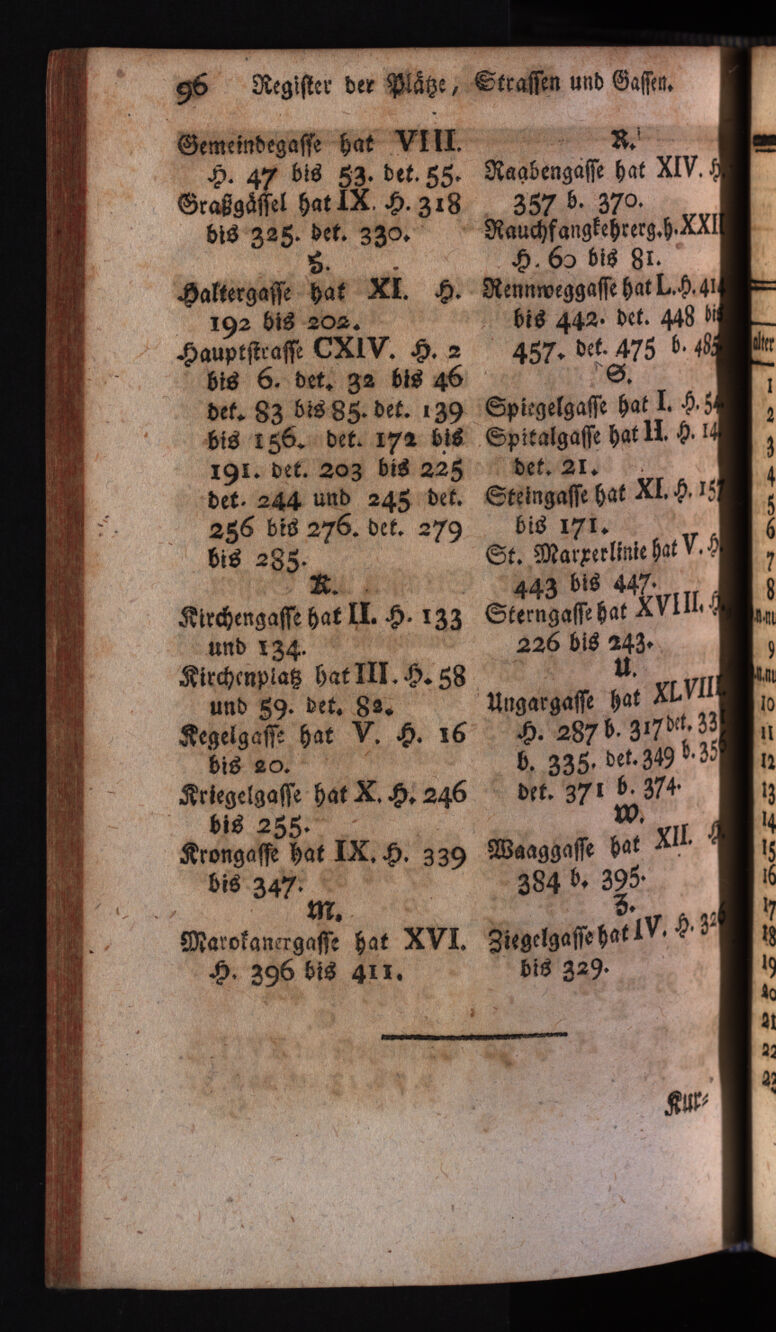 96 Register der Plätze, Strassen und Gassen.
Gemeindegasse hat VIII.
H. 47 bis 53. det. 55.
Graßgässel hat IX. H. 318
bis 325. det. 330.
H.
Haltergasse hat XI. H.
192 bis 202.
Hauptstrasse CXIV. H. 2
bis 6. det. 32 bis 46
det. 83 bis 85. det. 139
bis 156. det. 172 bis
191. det. 203 bis 225
det. 244 und 245 det.
256 bis 276. det. 279
bis 285.
K.
Kirchengasse hat II. H. 133
und 134.
Kirchenplatz hat III. H. 58
und 59. det. 82.
Kegelgasse hat V. H. 16
bis 20.
Kriegelgasse hat X. H. 246
bis 255.
Krongasse hat IX. H. 339
bis 347.
M.
Marokanergasse hat XVI.
H. 396 bis 411.
R.
Raabengasse hat XIV. H
357 b. 370.
Rauchfangkehrerg. h. XXII
H. 60 bis 81.
Rennweggasse hat L. H. 41
bis 442. det. 448 bis
457. det. 475 b. 485
S.
Spiegelgasse hat I. H. 54
Spitalgasse hat II. H. 14
det. 21.
Steingasse hat XI. H. 157
bis 171.
St. Marxerlinie hat V. H
443 bis 447.
Sterngasse hat XVIII. H
226 bis 243.
U.
Ungargasse hat XLVIII
H. 287 b. 317 det. 33
b. 335. det. 349 b. 35
det. 371 b. 374.
W.
Waaggasse hat XII. H
384 b. 395.
Z.
Ziegelgasse hat IV. H. 326
bis 329.
Kur-
alter
1
2
3
4
5
6
7
8
9
10
11
12
13
14
15
16
17
18
19
20
21
22
23